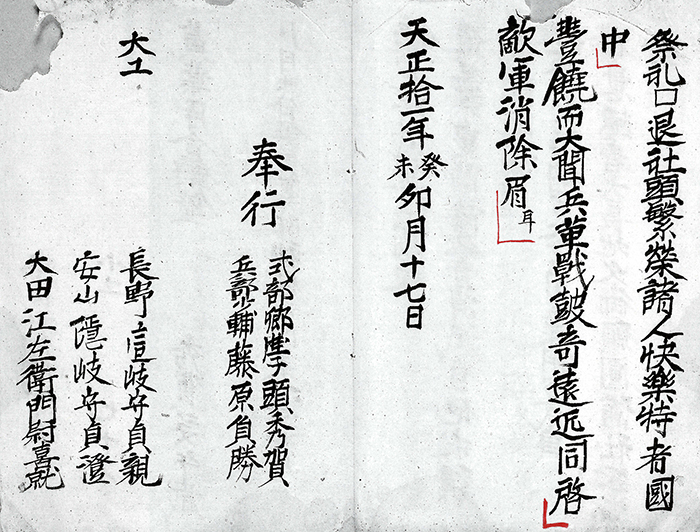 祭礼口退社頭繁榮諸人快樂特者國
中
豊饒而大聞兵革戰鼓奇遠近同啓
敵軍消除眉耳
天正拾一年癸未卯月十七日
奉行
式部卿學頭秀賀
兵部少輔藤原負勝
大工
長野壱岐守貞親
安山隱岐守貞澄
大田江左衛門尉喜就